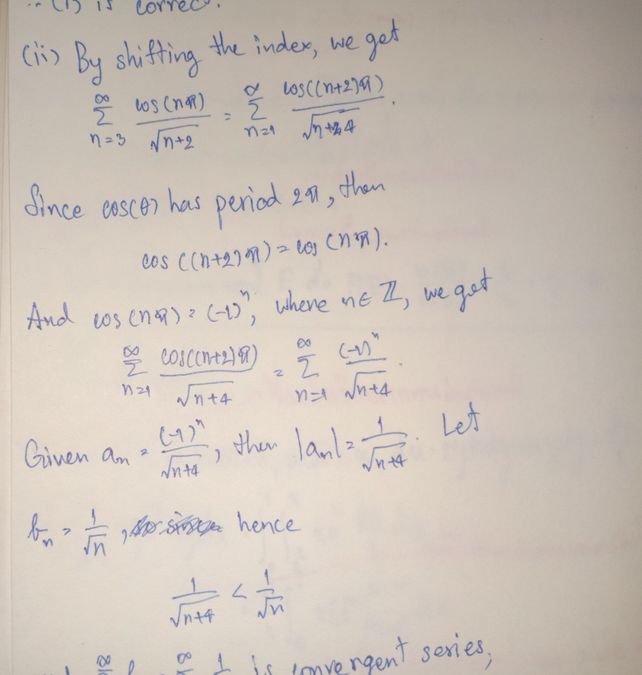 ∴ (i) is correct.
(ii) By shifting the index, we get
∞ ∑ n=3 cos(nπ) / √n+2 = ∞ ∑ n=1 cos((n+2)π) / √n+4 .
Since cos(θ) has period 2π, then
cos ((n+2)π) = cos (nπ).
And cos(nπ) = (-1)ⁿ, where n∈ℤ, we get
∞ ∑ n=1 cos((n+2)π) / √n+4 = ∞ ∑ n=1 (-1)ⁿ / √n+4 .
Given aₙ = (-1)ⁿ / √n+4 , then |aₙ| = 1 / √n+4 . Let
bₙ = 1 / √n , hence
1 / √n+4 < 1 / √n
∞ ∞ 1 is convergent series,